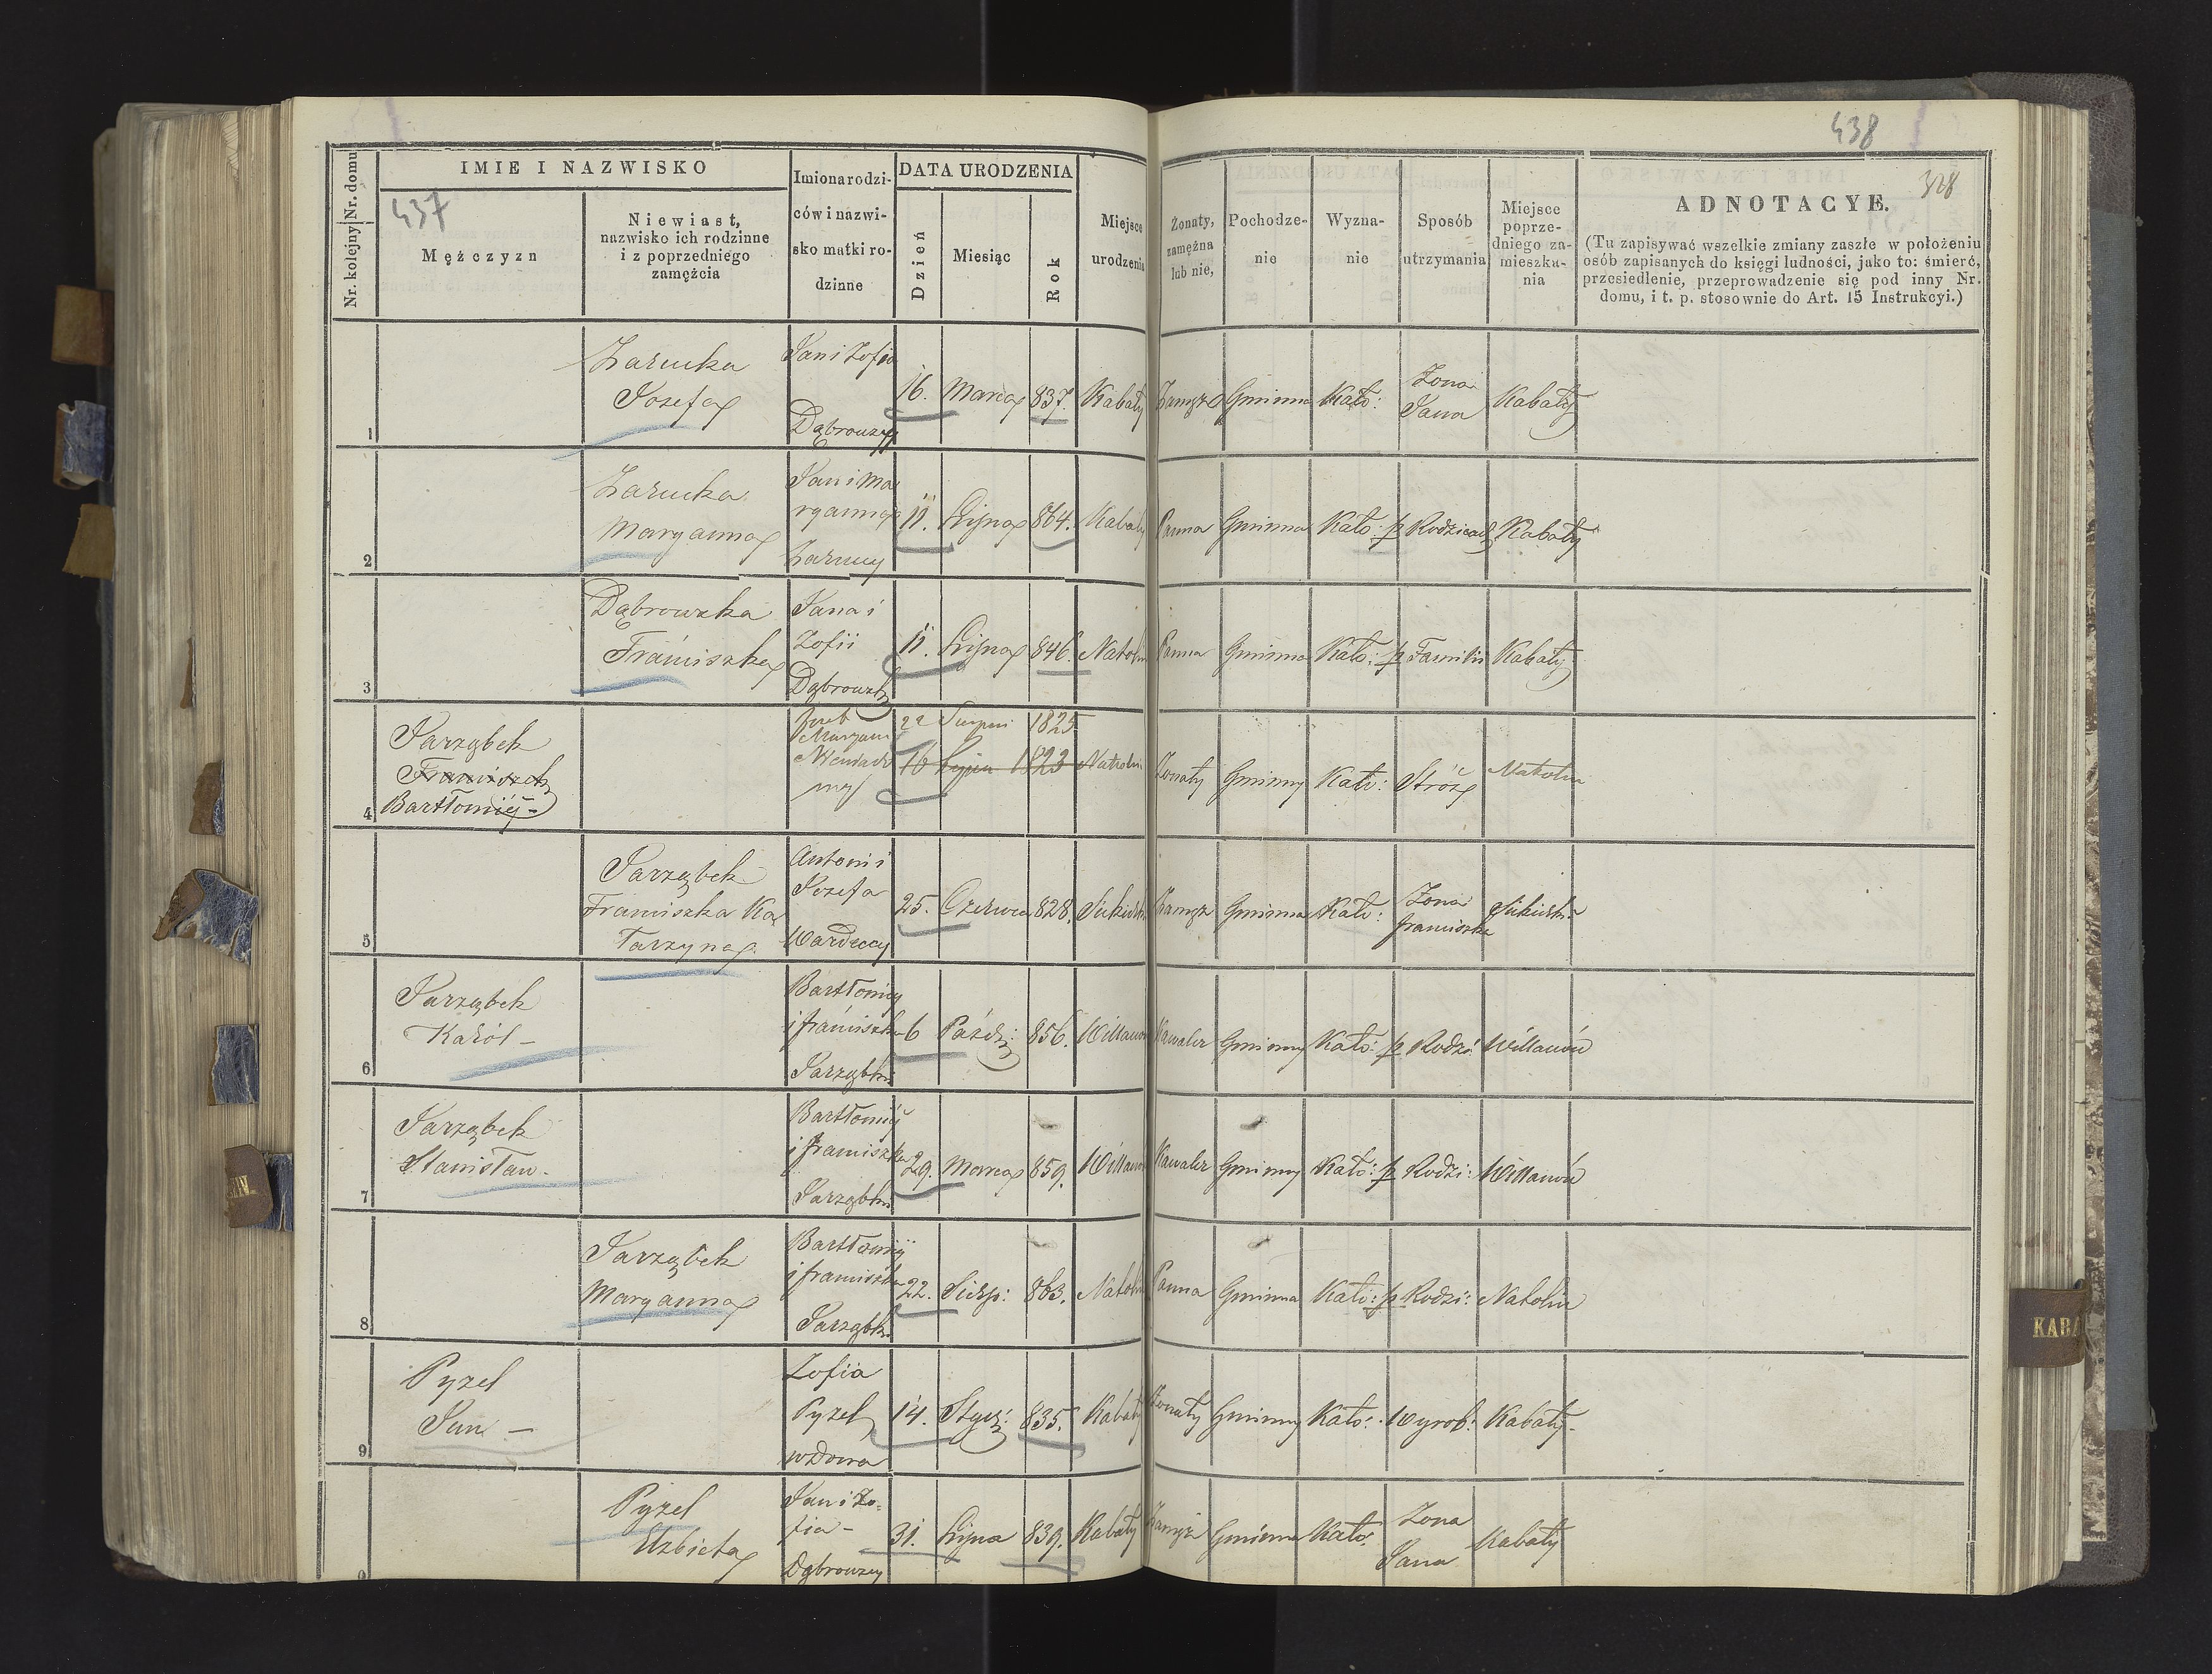 437
438
328
Nr. kolejny Nr. domu
IMIE I NAZWISKO
Mężczyzn
Niewiast,
nazwisko ich rodzinne
i z poprzedniego
zamężcia
Imiona rodzi-
ców i nazwi-
sko matki ro-
dzinne
DATA URODZENIA
Dzień
Miesiąc
Rok
Miejsce
urodzenia
Żonaty,
zamężna
lub nie,
Pochodze-
nie
Wyzna-
nie
Sposób
utrzymania
Miejsce
poprze-
dniego za-
mieszka-
nia
ADNOTACYE.
(Tu zapisywać wszelkie zmiany zaszłe w położeniu
osób zapisanych do księgi ludności, jako to: śmierć,
przesiedlenie, przeprowadzenie się pod inny Nr.
domu, i t. p. stosownie do Art. 15 Instrukcyi.)
1
Józefa
Jan i Zofia
16. Marca 837. Kabaty
Gminna Kato:
Żona
Jana
Kabaty
2
Maryanna
Jan i Ma
ryanna
11. Lipca 864. Kabaty
Panna Gminna Kato: p Rodzicach Kabaty
3
Dąbrowska
Franciszka
Jana i
Zofii
11. Lipca 846. Natolin
Panna Gminna Kato: p Familii Kabaty
4
Jarząbek
Franciszek
Bartłomiej -
22 Sierpn 1825
16 Lipca 1823 Natolin
Żonaty Gminny Kato: Stróż Natolin
5
Jarząbek
Franciszka Ka
tarzyna
Antoni i
Józefa
25. Czerwca 828.
Gminna Kato:
Żona
franciszka
6
Jarząbek
Karól -
Bartłomiej
i franciszka
6 Paździ: 856. Willanów
Kawaler Gminny Kato: p Rodzi: Willanów
7
Jarząbek
Stanisław -
Bartłomiej
i franciszka
29. Marca 859. Willanów
Kawaler Gminny Kato: p Rodzi: Willanów
8
Jarząbek
Maryanna
Bartłomiej
i franciszka
22. Sierp: 863. Natolin
Panna Gminna Kato: p Rodzi: Natolin
9
Pyzel
Jan -
Zofia
Pyzel
wdowa
14. Stycz: 835. Kabaty
Żonaty Gminny Kato: Wyrob: Kabaty -
0
Pyzel
Elzbieta
Jan i Zo-
fia -
31. Lipca 839. Kabaty
Gminna Kato:
Żona
Jana
Kabaty
KABA